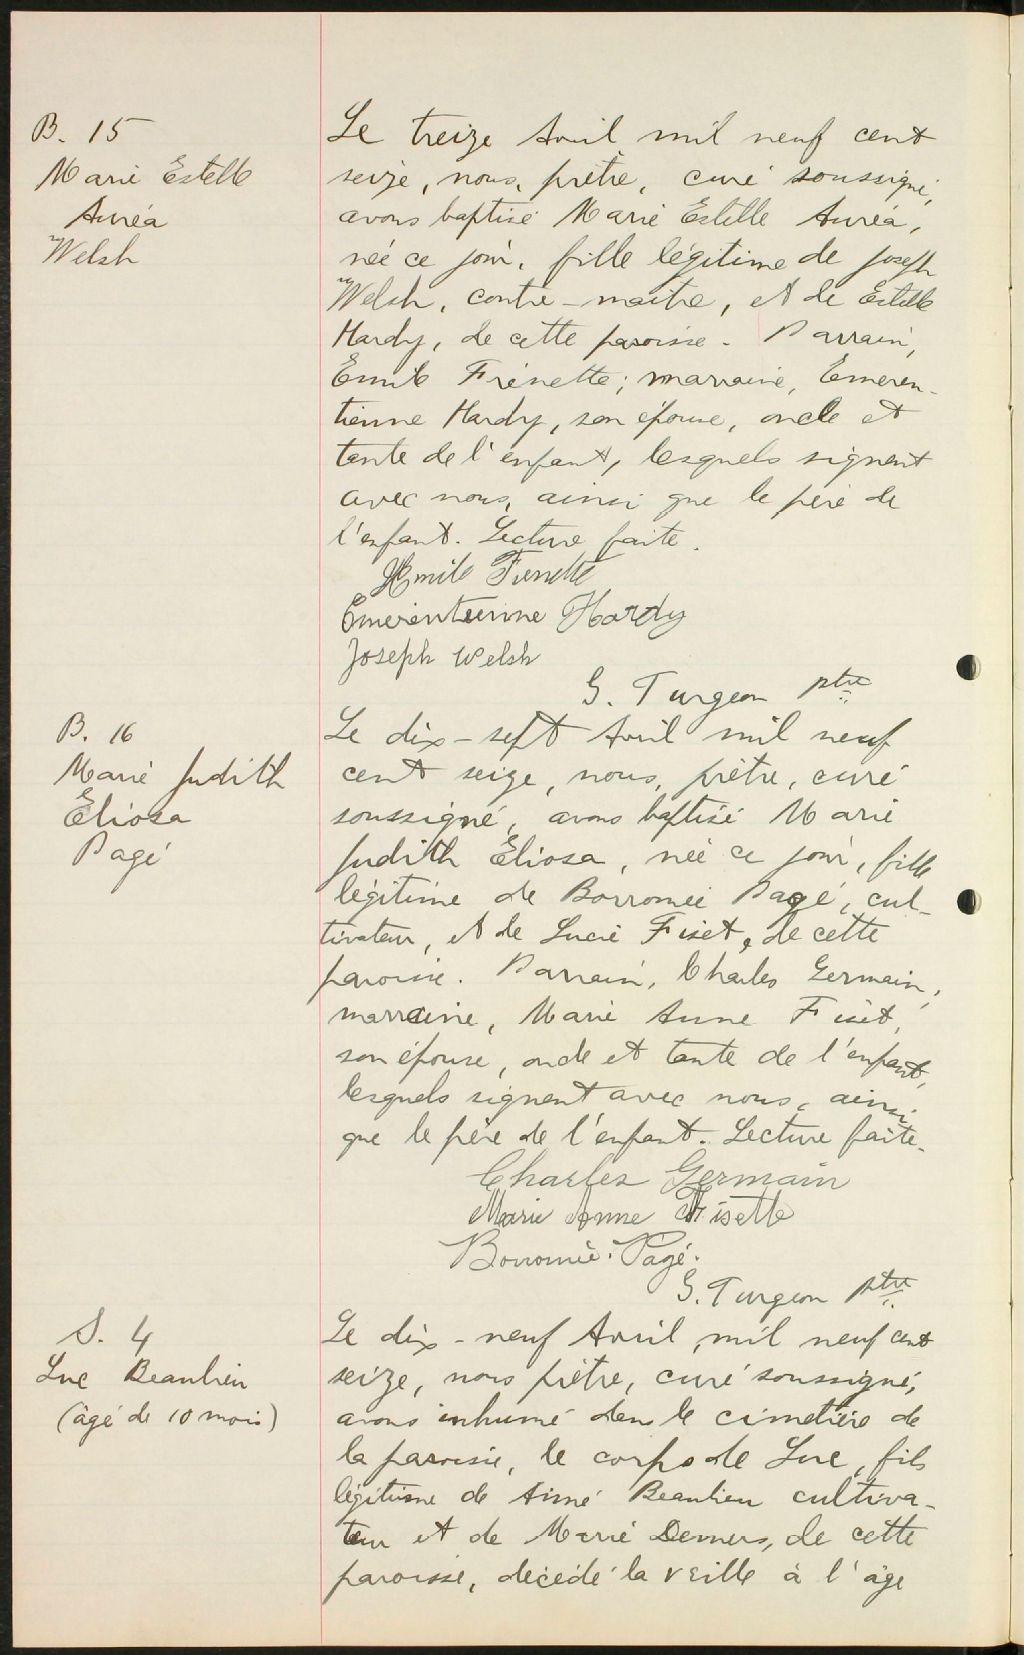 B. 15
Marie Estelle
Auréa
Welsh
Le treize Avril mil neuf cent
seize, nous, prêtre, curé soussigné,
avons baptisé Marie Estelle Auréa,
née ce jour, fille légitime de Joseph
Welsh, contre-maître, et de Estelle
Hardy, de cette paroisse. Parrain,
Emile Frénette; marraine, Emeren-
tienne Hardy, son épouse, oncle et
tante de l'enfant, lesquels signent
avec nous, ainsi que le père de
l'enfant. Lecture faite.
Emile Frenette
Emerentienne Hardy
Joseph Welsh
G. Turgeon ptre
B. 16
Marie Judith
Éliosa
Pagé
Le dix-sept Avril mil neuf
cent seize, nous, prêtre, curé
soussigné, avons baptisé Marie
Judith Éliosa, née ce jour, fille
légitime de Borromée Pagé, cul-
tivateur, et de Lucie Fiset, de cette
paroisse. Parrain, Charles Germain,
marraine, Marie Anne Fiset,
son épouse, oncle et tante de l'enfant,
lesquels signent avec nous, ainsi
que le père de l'enfant. Lecture faite.
Charles Germain
Marie Anne Fisette
Borromée Pagé.
G. Turgeon ptre
S. 4
Luc Beaulieu
(âgé de 10 mois)
Le dix-neuf Avril mil neuf cent
seize, nous prêtre, curé soussigné,
avons inhumé dans le cimetière de
la paroisse, le corps de Luc, fils
légitime de Aimé Beaulieu cultiva-
teur et de Marie Demers, de cette
paroisse, décédé la veille à l'âge